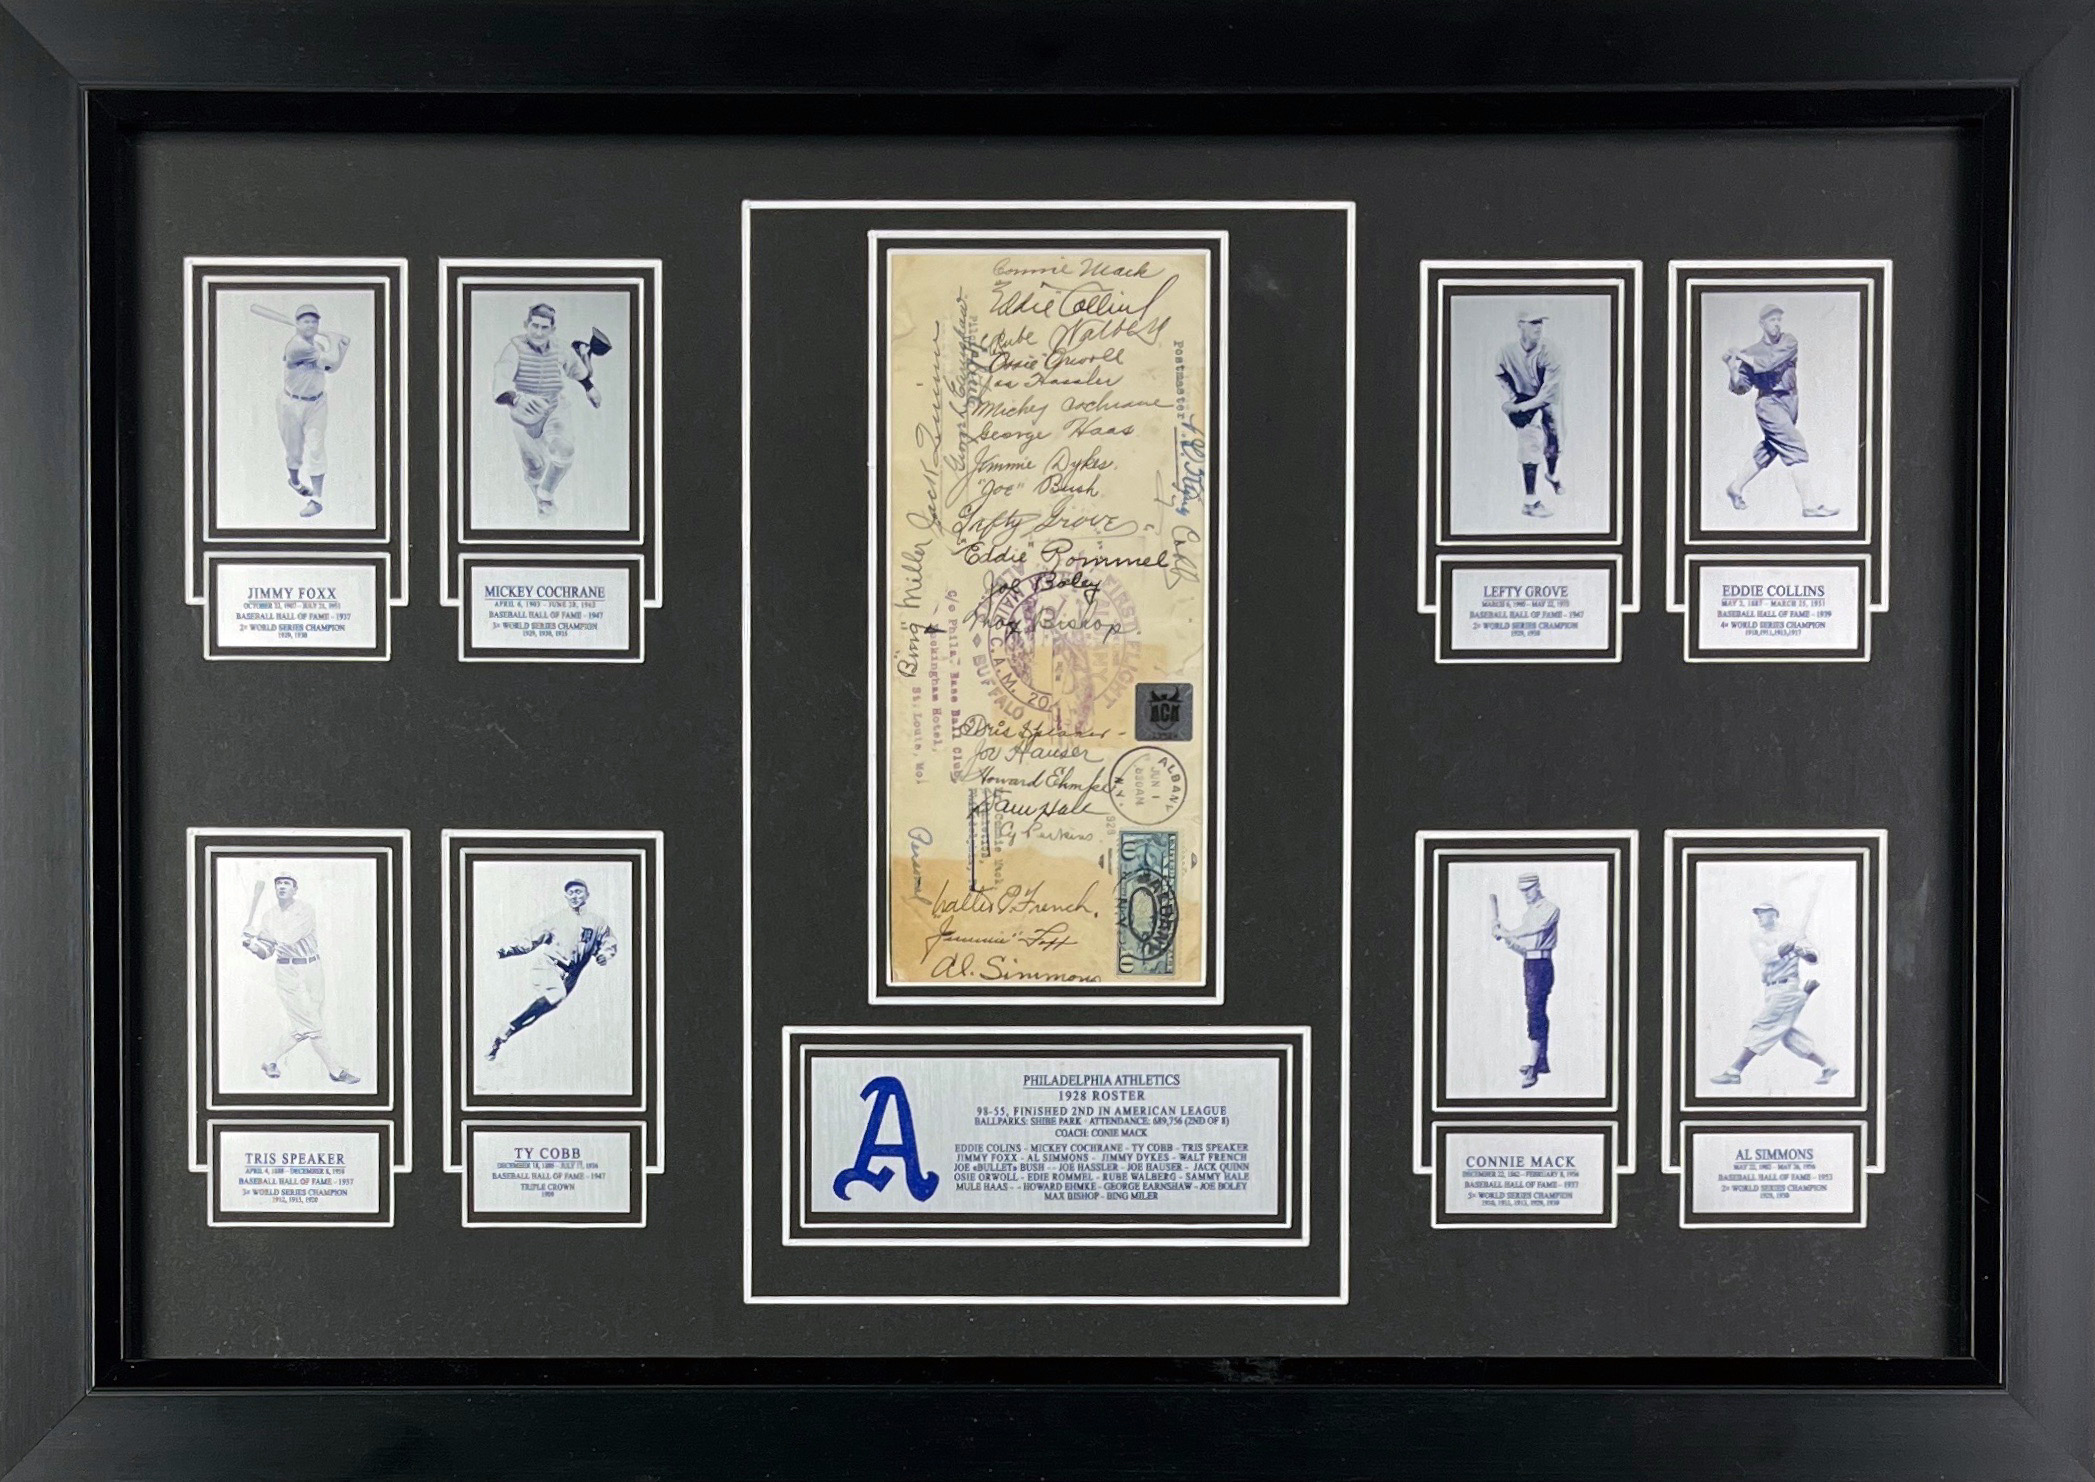 JIMMY FOXX
OCTOBER 22, 1907 - JULY 21, 1967
BASEBALL HALL OF FAME - 1937
2× WORLD SERIES CHAMPION
1929, 1930
MICKEY COCHRANE
APRIL 6, 1903 - JUNE 28, 1962
BASEBALL HALL OF FAME - 1947
3× WORLD SERIES CHAMPION
1929, 1930, 1935
TRIS SPEAKER
APRIL 4, 1888 - DECEMBER 8, 1958
BASEBALL HALL OF FAME - 1937
3× WORLD SERIES CHAMPION
1912, 1915, 1920
TY COBB
BASEBALL HALL OF FAME - 1947
TRIPLE CROWN
1909
Connie Mack
"Eddie" Collins
Rube Walberg
"Ossie" Orwoll
Joe Hassler
Mickey Cochrane
George Haas
Jimmie Dykes
"Joe" Bush
"Lefty Grove"
"Eddie" Rommel
Joe Boley
Max Bishop
Tris Speaker
Joe Hauser
Howard Ehmke
Sam Hale
Cy Perkins
Walter E. French.
"Jimmie" Foxx
Al. Simmons
"Bing" Miller
Jack Quinn
George Earnshaw
Ty Cobb
Postmaster
c/o Phila. Base Ball Club,
Buckingham Hotel,
St. Louis, Mo.
Personal
FIRST FLIGHT
C.A.M. 20
BUFFALO
ACA
ALBANY
JUN 1
630AM
N.Y.
1928
10
10
PHILADELPHIA ATHLETICS
1928 ROSTER
98-55, FINISHED 2ND IN AMERICAN LEAGUE
BALLPARKS: SHIBE PARK · ATTENDANCE: 689,756 (2ND OF 8)
COACH: CONIE MACK
EDDIE COLINS - MICKEY COCHRANE - TY COBB - TRIS SPEAKER
JIMMY FOXX - AL SIMMONS - JIMMY DYKES - WALT FRENCH
JOE «BULLET» BUSH - - JOE HASSLER - JOE HAUSER - JACK QUINN
OSIE ORWOLL - EDIE ROMMEL - RUBE WALBERG - SAMMY HALE
MULE HAAS - - HOWARD EHMKE - GEORGE EARNSHAW - JOE BOLEY
MAX BISHOP - BING MILER
LEFTY GROVE
BASEBALL HALL OF FAME - 1947
2× WORLD SERIES CHAMPION
1929, 1930
EDDIE COLLINS
MAY 2, 1887 - MARCH 25, 1951
BASEBALL HALL OF FAME - 1939
4× WORLD SERIES CHAMPION
1910,1911,1913,1917
CONNIE MACK
DECEMBER 22, 1862 - FEBRUARY 8, 1956
BASEBALL HALL OF FAME - 1937
5× WORLD SERIES CHAMPION
1910, 1911, 1913, 1929, 1930
AL SIMMONS
MAY 22, 1902 - MAY 26, 1956
BASEBALL HALL OF FAME - 1953
2× WORLD SERIES CHAMPION
1929, 1930